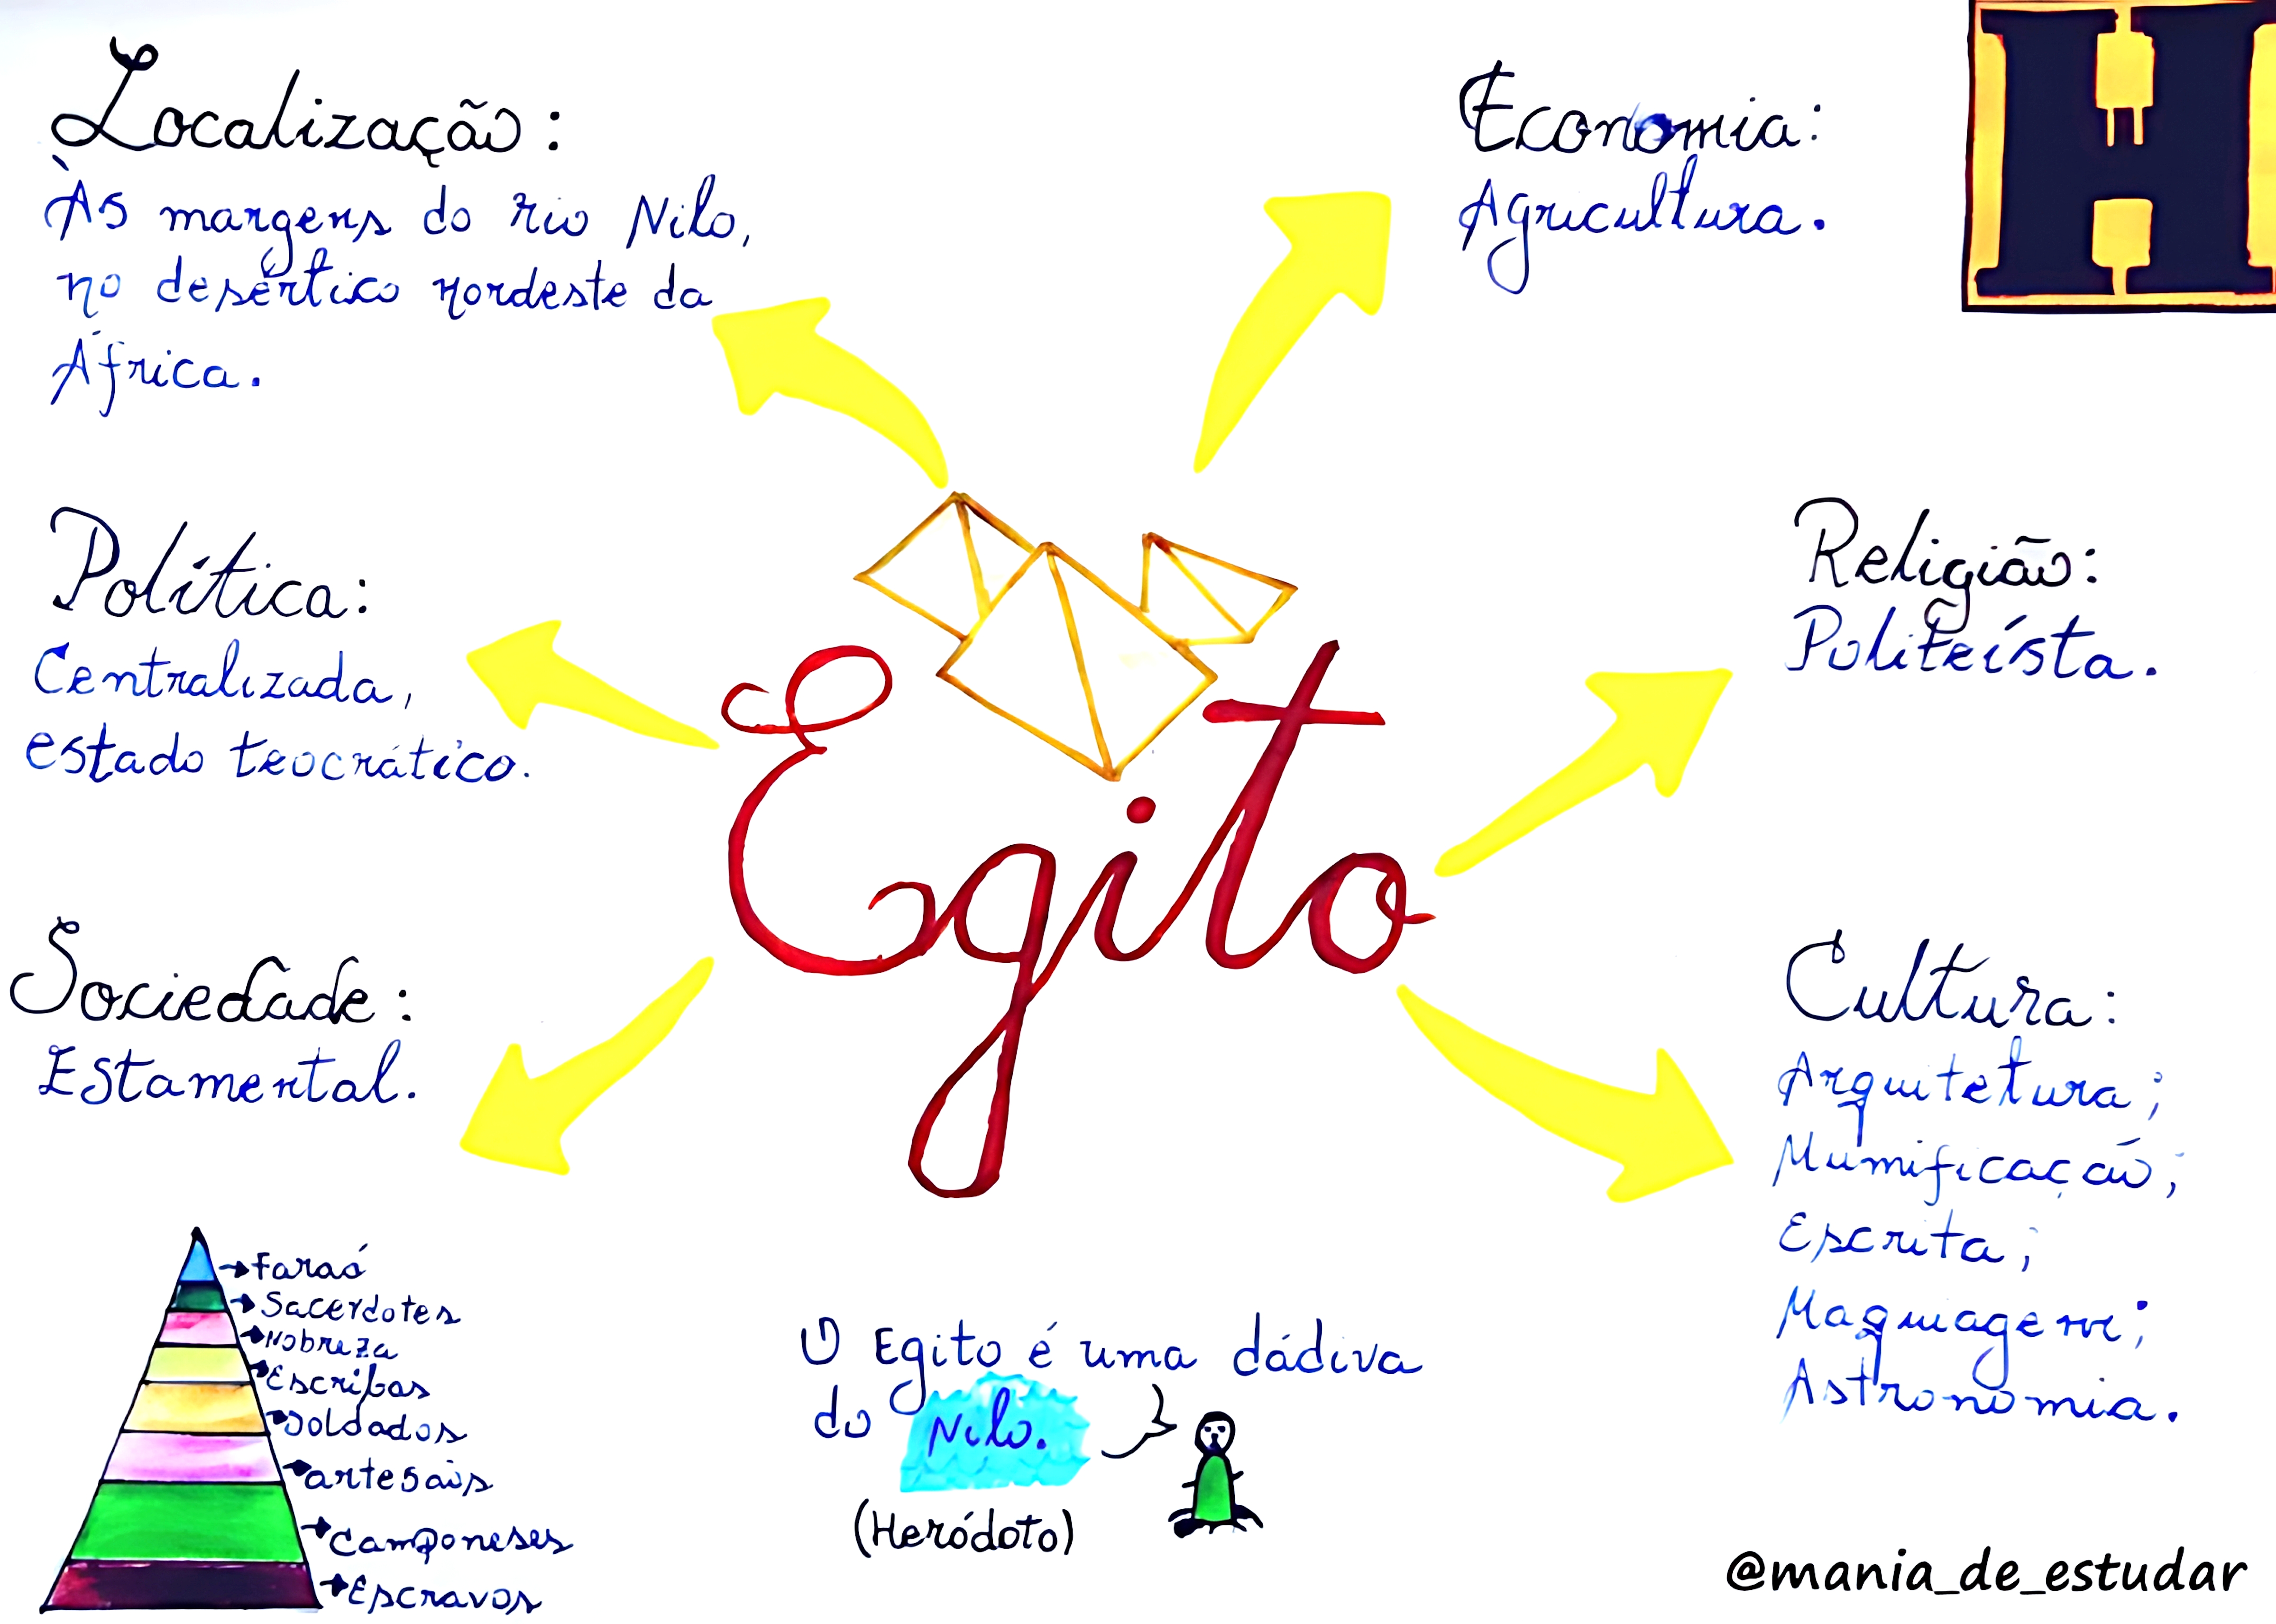 Localização:
Às margens do rio Nilo,
no desértico nordeste da
África.
Economia:
Agricultura.
H
Política:
Centralizada,
estado teocrático.
Religião:
Politeísta.
Egito
Sociedade:
Estamental.
Cultura:
Arquitetura;
Mumificação;
Escrita;
Maquiagem;
Astronomia.
Faraó
Sacerdotes
Nobreza
Escribas
Soldados
artesãis
Camponeses
Escravos
O Egito é uma dádiva
do Nilo.
(Heródoto)
@mania_de_estudar